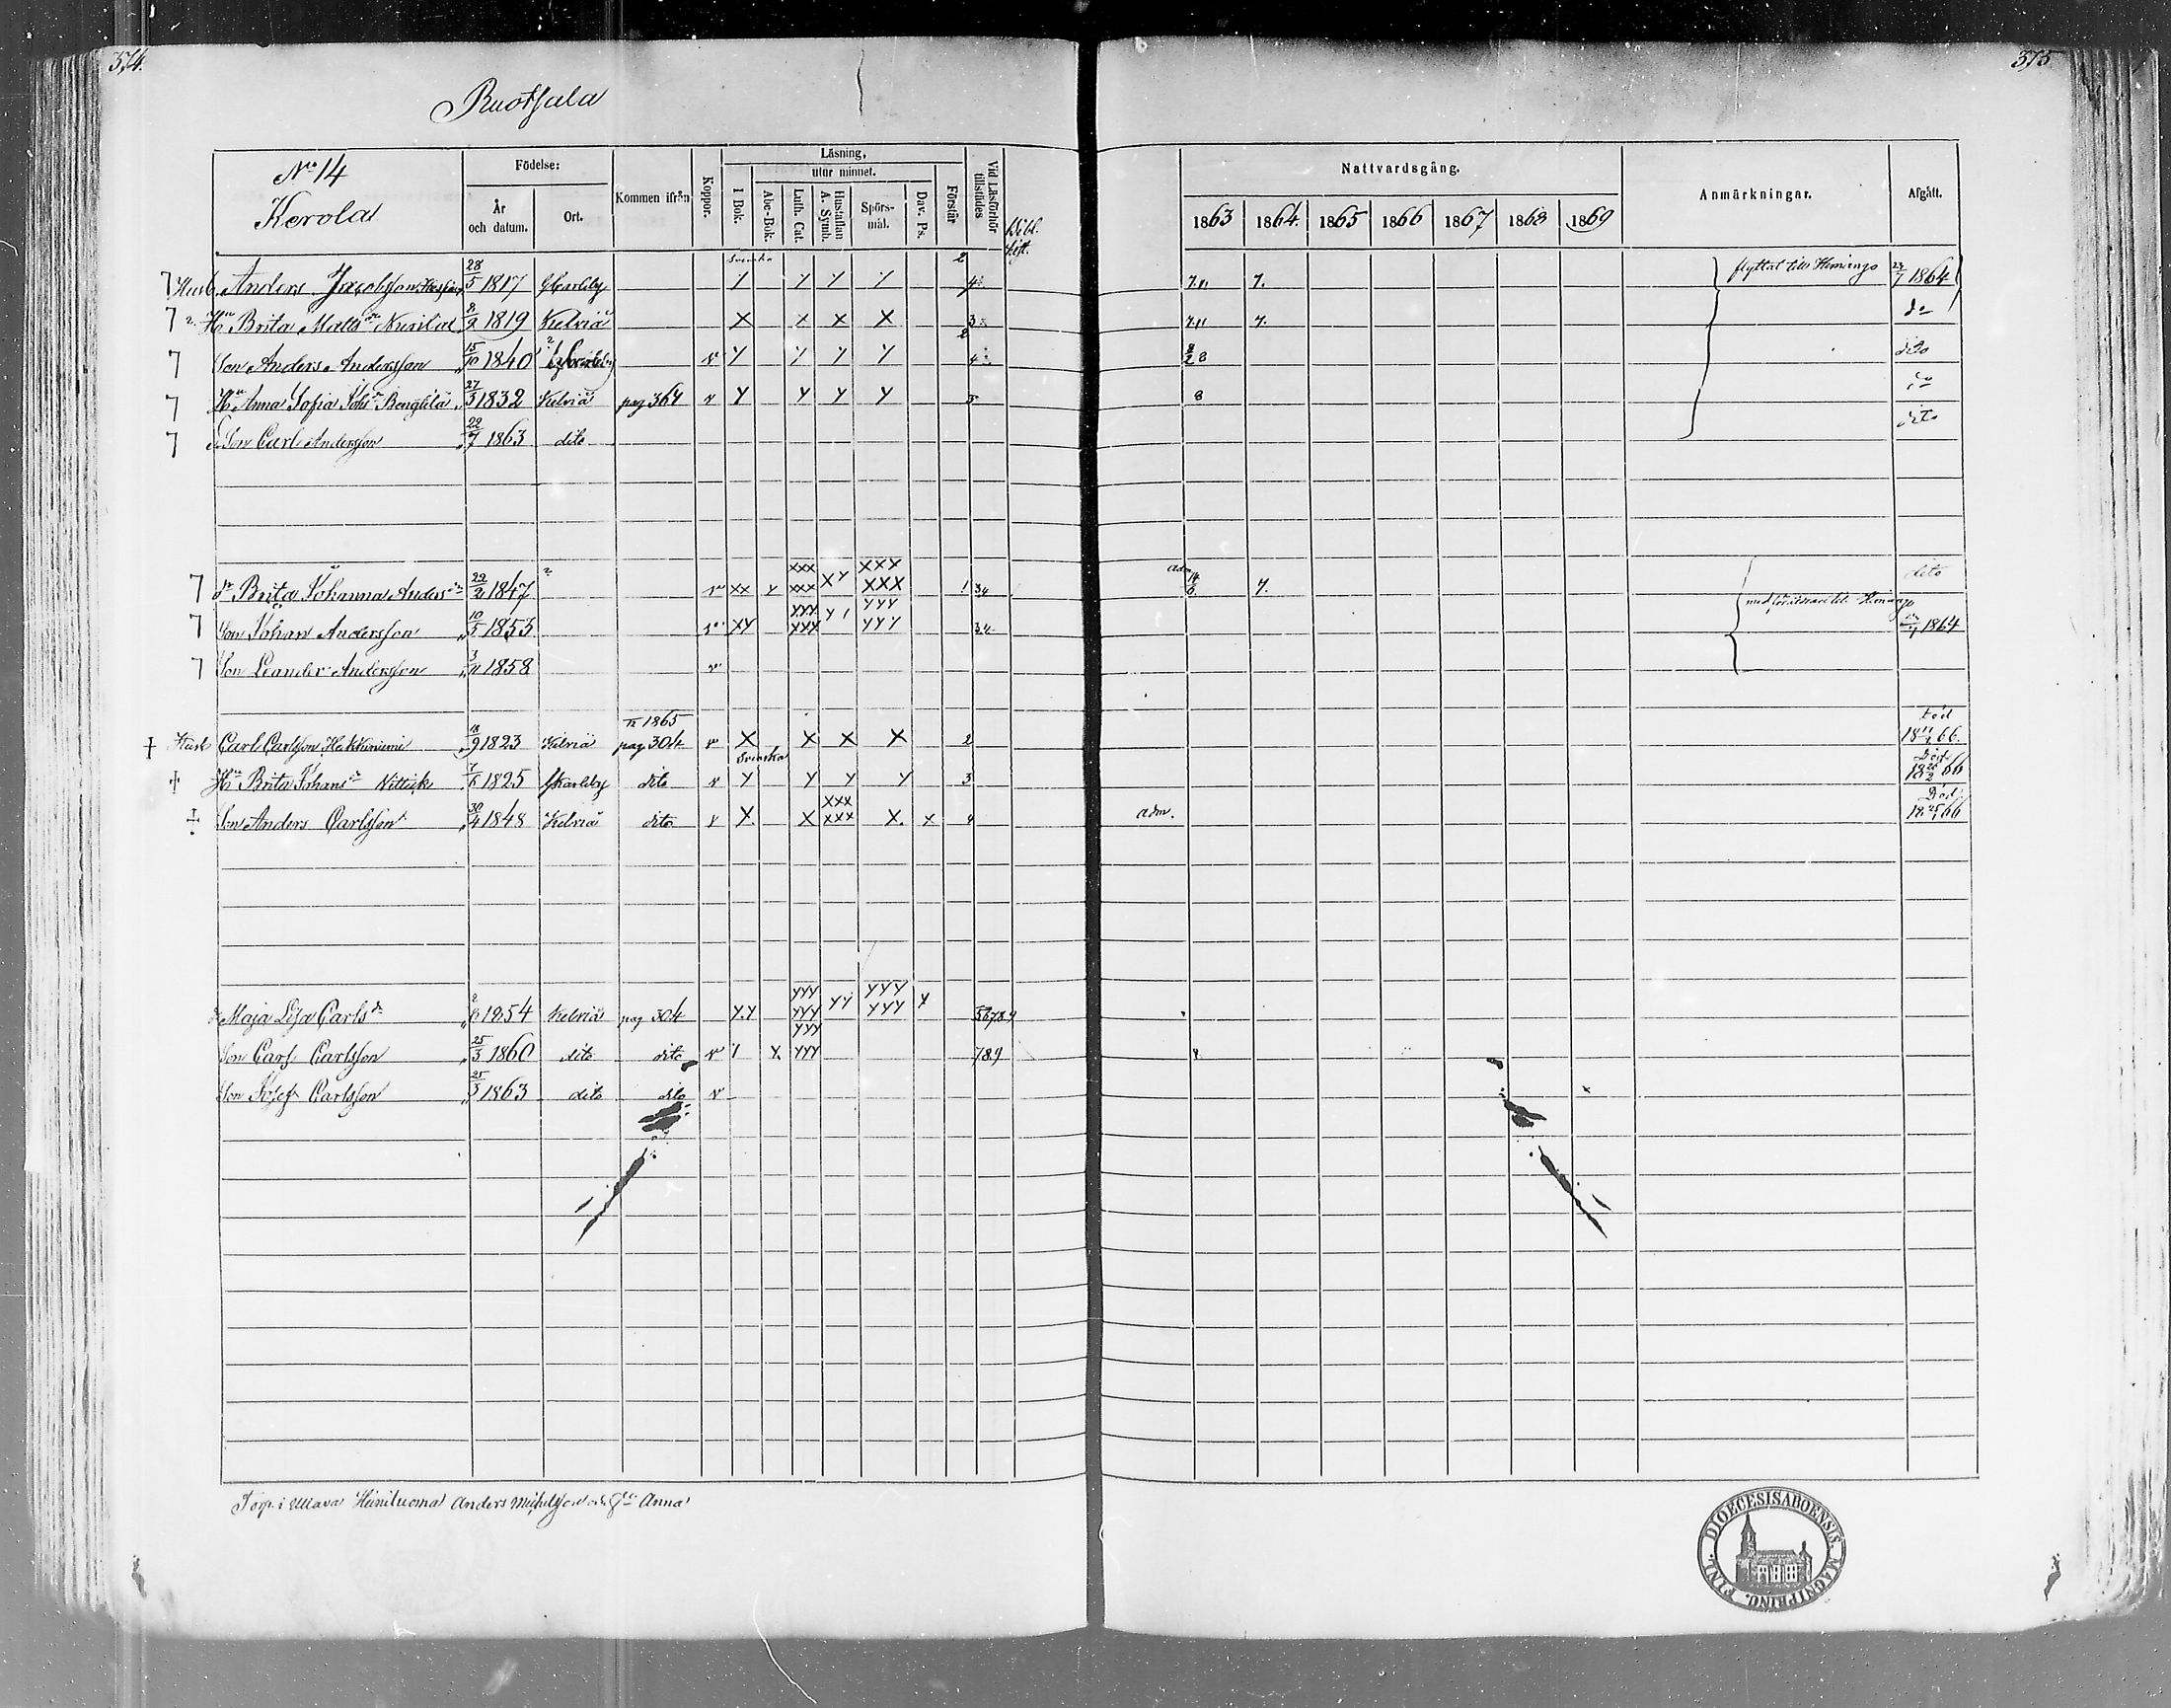 374.
375
Ruotsala
No 14
Kerola
Födelse:
År och datum.
Ort.
Kommen ifrån
Koppor.
Läsning,
utur minnet.
I Bok.
Abc-Bok.
Luth. Cat.
Hustaflan A. Symb.
Spörs-mål.
Dav. Ps.
Förstår
Vid Läsförhör tillstädes
Nattvardsgång.
1863 1864. 1865 1866 1867 1868 1869
Anmärkningar.
Afgått.
Svenska
Husb. Anders Jacobsson 28/5 1817 Gkarleby 2 4 7.11 7. flyttat till Himango 23/7 1864
Hu Brita Matts dr Nurila 8/2 1819 Kelviå X X X X 3 7.11 7. do
Son Anders Andersson 15/10 1840 v Y Y Y Y 2 4 8 dito
Hu Anna Sofia Joh dr Bengtilä 27/3 1832 Kelviå pag 364 v Y Y Y Y 5 8 do
Son Carl Andersson 22/7 1863 dito dito
dr Brita Johanna Anders dr 22/2 1847 v xx y xxx xxx xy xxx xxx 1 34 adm 14/6 7. dito
Son Johan Andersson 10/5 1853 v XY YYY YYY YYY YYY 34 med föräldrar till Himango 1864
Son Leander Andersson 3/11 1858 v
1865
Husb Carl Carlsson Hakkiniemi 18/9 1823 Kelviå pag 304 v X X X X 2 död 18 66.
Svenska
Hu Brita Johans dr Nittick 7/6 1825 Gkarleby dito v Y Y Y Y 3 Död 18 66
Son Anders Carlsson 30/4 1848 Kelviå dito v X. X XXX XXX X. X 4 adm. Död 18 66
dr Maja Lisa Carls dr 1854 Kelviå pag 304 Y.Y YYY YYY YYY YY YYY YYY Y 56789
Son Carl Carlsson 25/3 1860 dito dito v Y Y. YYY 789
Son Josef Carlsson 25/3 1863 dito dito v
Torp. i Ullava Heiniluoma Anders Michelsson och Anna
DIOECESIS ABOENSIS. MAGNI PRINC. FINL.